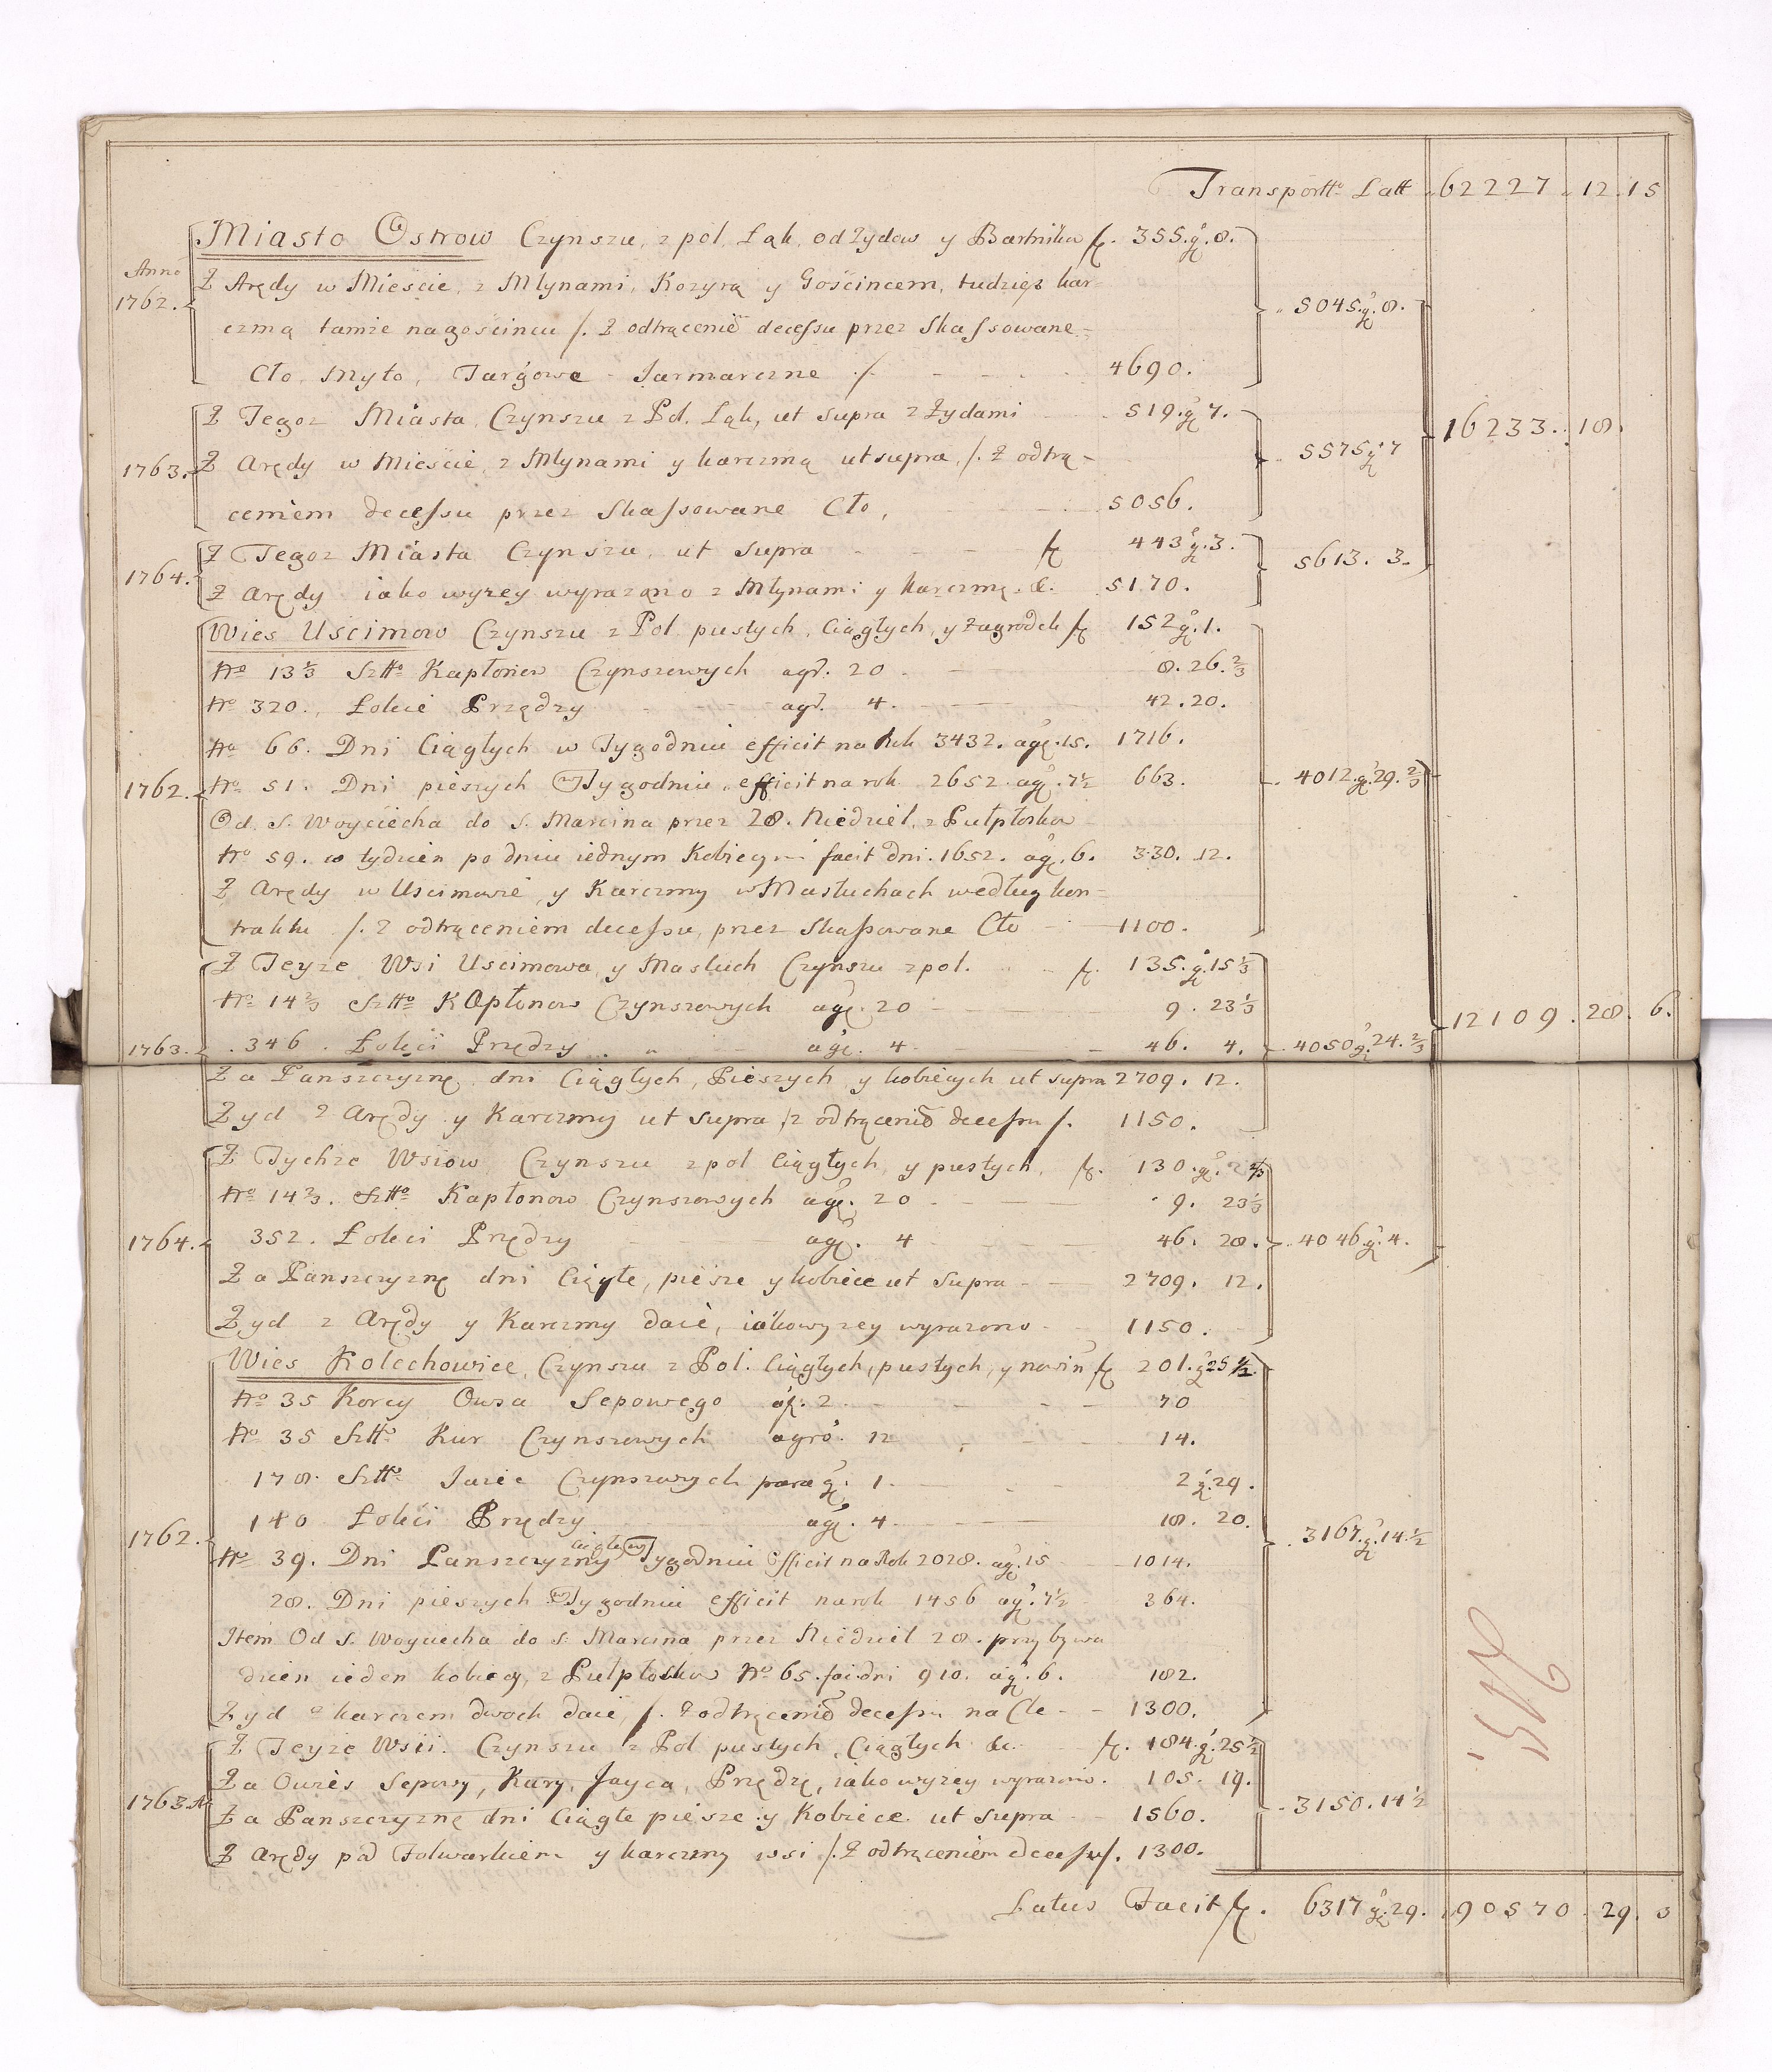 Transportto Latt 62227 . 12 . 15
Miasto Ostrow Czynszu, z pol, Łąk, od Żydow y Bartnikow f. 355. gr. 8.
Anno 1762. Z Arędy w Mieście, z Młynami, Kozyrą y Gościncem, tudzięż kar= 5045. gr. 8.
czmą tamże na gościncu /. Z odtrącenie decessu przez Skassowane=
Cło, Myto, Targowe Jarmarczne ./. 4690.
Z Tegoz Miasta, Czynszu z Pol. Łąk, ut supra z Żydami 519. gr. 7. 16233 . 18.
1763. Z Arędy w Mieście, z Młynami y karczmą ut supra, /. Z odtrą= 5575 gr. 7
ceniem decessu przez Skassowane Cło, 5056.
Z Tegoz Miasta Czynszu, ut supra f. 443 gr. 3. 5613. 3.
1764. Z Arędy iako wyzey wyrazono z Młynami y karczmą. &. 5170.
Wies Uscimow Czynszu z Pol pustych, Ciągłych, y Zagrodek f. 152 gr. 1.
No 13 1/3 Sztto Kapłonow Czynszowych agr. 20 8. 26. 2/3
No 320. Łokcie Przędzy agr. 4. 42. 20.
No 66. Dni Ciągłych w Tygodniu efficit na Rok 3432. agr. 15. 1716.
1762. No 51. Dni pieszych w Tygodniu, efficit na rok 2652. agr. 7 1/2 663. 4012. gr. 29. 2/3
Od S. Woyciecha do S. Marcina przez 28. Niedziel, z Pułpłoskow
No 59. w tydzień po dniu iednym Kobiecym facit dni. 1652. agr. 6. 330. 12.
Z Arędy w Uscimowie, y Karczmy w Masluchach według kon=
traktu /. Z odtrąceniem decessu, przez Skassowane Cło 1100.
Z Teyze Wsi Uscimowa, y Masluch Czynszu z pol. f. 135. gr. 15 1/3
No 14 2/3 Sztto KOpłonow Czynszowych agr. 20 9. 23 1/3 12109 . 28. 6.
1763. 346. Łokci Przędzy agr. 4 46. 4. 4050 gr. 24. 2/3
Za Panszczyznę, dni Ciągłych, Pieszych, y kobiecych ut supra 2709. 12.
Zyd z Arędy y Karczmy ut supra /z odtrącenie decessu /. 1150.
Z Tychze Wsiow, Czynszu z pol Ciągłych, y pustych, f. 130. gr.
No 14 2/3. Sztto Kapłonow Czynszowych agr. 20 9. 23 1/3
1764. 352. Łokci Przędzy agr. 4 46. 28. 4046 gr. 4.
Za Panszczyznę dni Ciągłe, piesze y kobiece ut supra 2709. 12.
Zyd z Arędy y Karczmy daie, iako wyzey wyrazono 1150.
Wies Kolechowice, Czynszu z Pol. Ciągłych, pustych, y nowin f. 201. gr. 25 1/2.
No 35 Korcy Owsa Sepowego af. 2 70
No 35 Sztto Kur Czynszowych agro. 12 14.
178. Sztto Jaiec Czynszowych para gr. 1. 2 gr. 29.
140 Łokci Przędzy agr. 4 18. 20.
1762. No 39. Dni Panszczyzny Ciągłey w Tygodniu Efficit na Rok 2028. agr. 15 1014. 3167. gr. 14 1/2
28. Dni pieszych w Tygodniu efficit na rok 1456 agr. 7 1/2 364.
Item Od S. Woyciecha do S. Marcina przez Niedziel 28. przybywa
dzien ieden kobiecy, z Pułpłoskow No 65. faci dni 910. agr. 6. 182.
Zyd z karczem dwoch daie, /. Z odtrącenie decessu na Cle 1300.
Z Teyze Wsii. Czynszu z Pol pustych, Ciągłych &c. f. 184. gr. 25 1/2
Za Owies Sepowy, Kury, Jayca, Przędzę, iako wyzey wyrazono. 105. 19.
1763. Za Panszczyznę dni Ciągłe piesze y Kobiece ut supra 1560. 3150. 14 1/2
Z Arędy pod Folwarkiem y karczmy wsi /. Z odtrąceniem decessu/. 1300.
Latus Facit f. 6317 gr. 29. 90570 . 29. 3